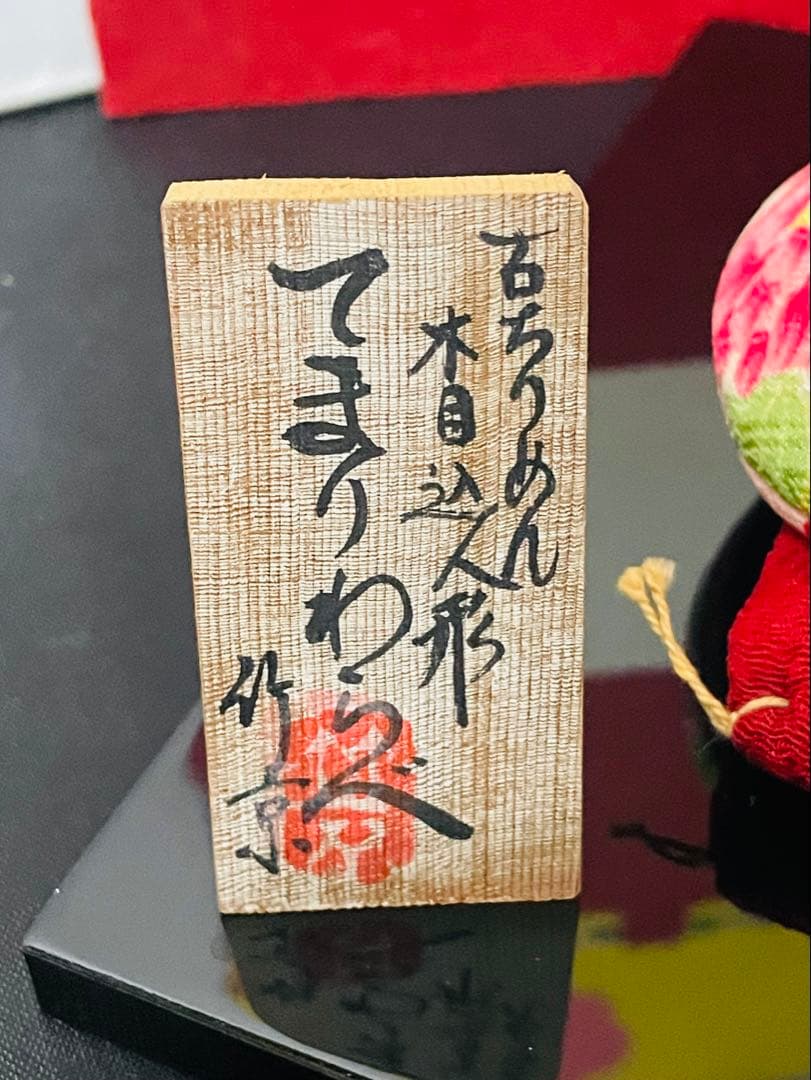 古ちりめん
木目込人形
てまりわらべ
竹京